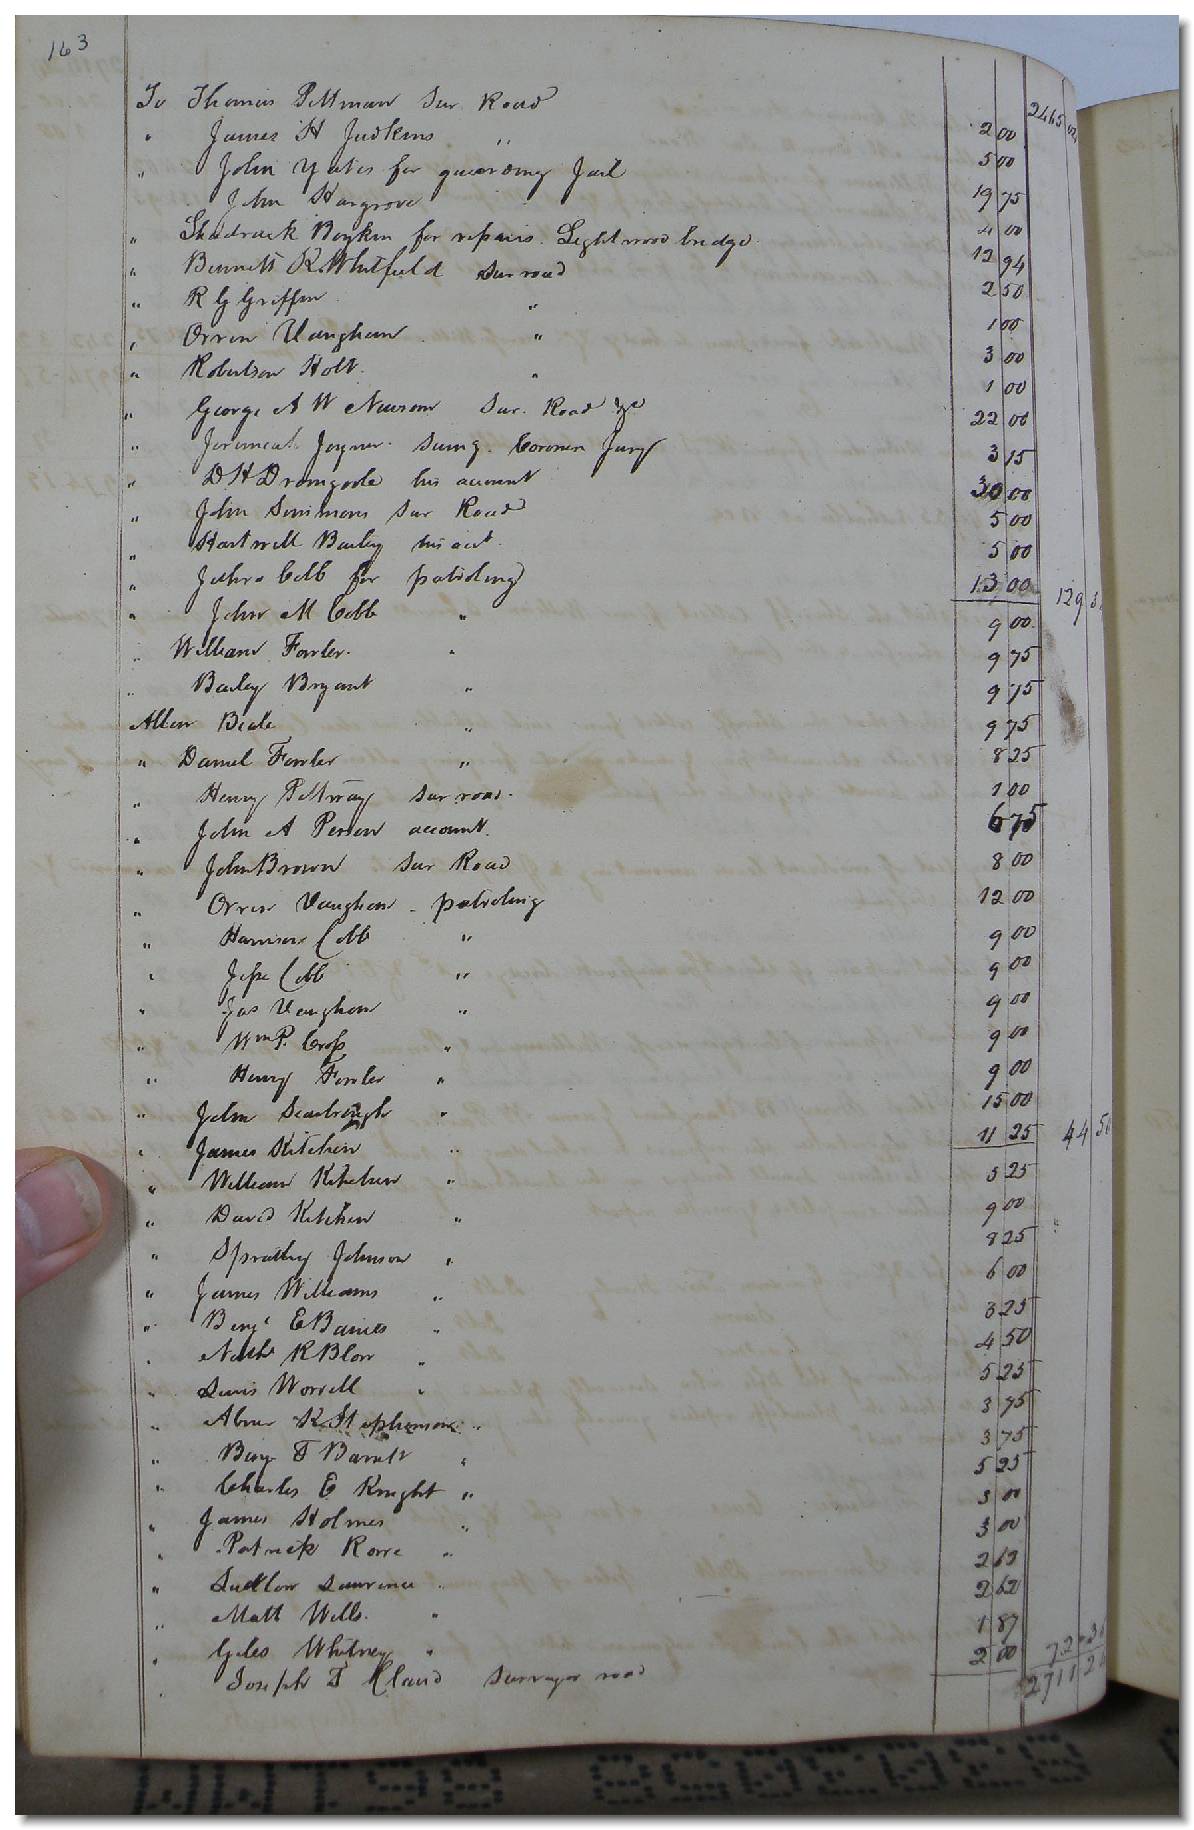 163
2465 02
To Thomas Pittman Sur Road 2 00
" James H Judkins " 5 00
" John Yates for guarding Jail 19 75
John Hargrove 4 00
" Shadrack Boykin for repairs Lightwood bridge 12 94
" Bennett K Whitfield Sur road 2 50
" R G Griffin " 1 00
" Orren Vaughan " 3 00
" Robertson Holt " 1 00
" George A W Newsom Sur. Road &c 22 00
" Jeremiah Joyner Sumg. Coroner Jury 3 15
" D H Dromgoole his account 30 00
" John Simmons Sur Road 5 00
" Hartwell Bailey his act 5 00
" Cobb for patroling 13 00 129
" John M Cobb " 9 00
" William Fowler " 9 75
" Bailey Bryant " 9 75
Allen Beale " 9 75
" Daniel Fowler " 8 25
" Henry Pettway Sur road 1 00
" John A Person account 6 75
" John Brown Sur Road 8 00
" Orren Vaughan patroling 12 00
" Harrison Cobb " 9 00
" Jesse Cobb " 9 00
" Jas Vaughan " 9 00
" Wm P. Cross " 9 00
" Henry Fowler " 9 00
" John Scarbrough " 15 00
" James Kitchen " 11 25 44 50
" William Kitchen " 5 25
" David Kitchen " 9 00
" Spratley Johnson " 8 25
" James Williams " 6 00
" Benj E Barnes " 3 25
" Nathl R Blow " 4 50
" Lewis Worrell " 5 25
" Abner K Stephenson " 3 75
" Benj T Barrett " 3 75
" Charles E Knight " 5 25
" James Holmes " 3 00
" Patrick Rorre " 3 00
" Ludlow Lawrence " 2 63
" Matt Wells " 2 62
" Giles Whitney " 1 87
" Joseph T Claud Surveyor road 2 00 72
2711 2